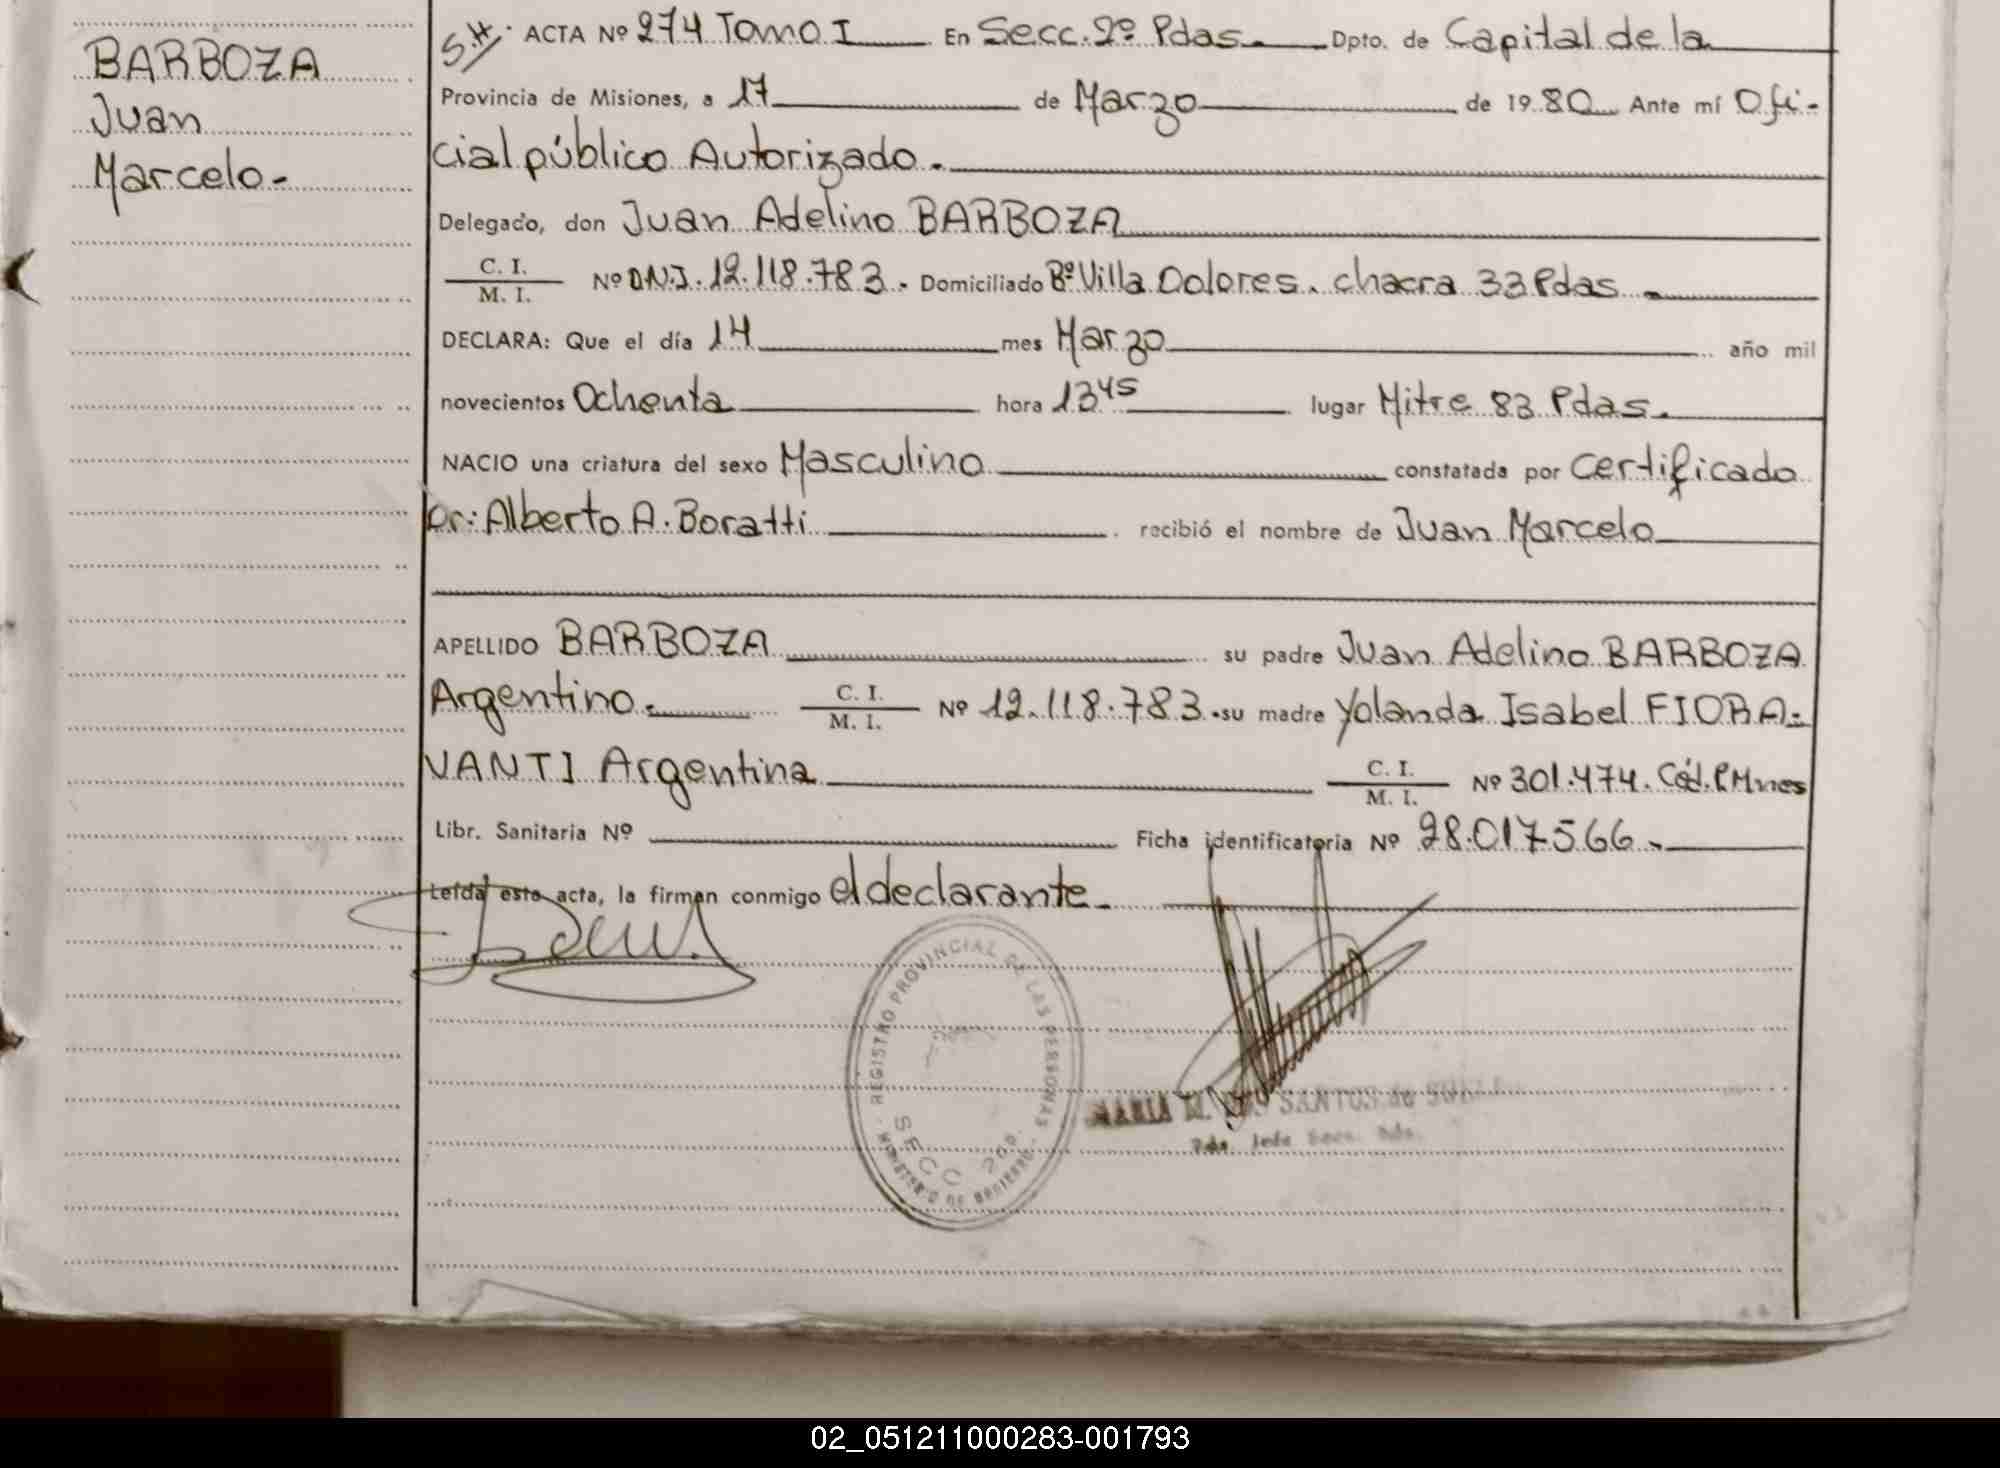 BARBOZA
Juan
Marcelo-
S.H. ACTA Nº 274 Tomo I En Secc. 2º Pdas. Dpto. de Capital de la
Provincia de Misiones, a 17 de Marzo de 1980 Ante mí Ofi-
cial público Autorizado.
Delegado, don Juan Adelino BARBOZA
C. I.
M. I. Nº D.N.I. 12.118.783. Domiciliado Bº Villa Dolores. chacra 33 Pdas.
DECLARA: Que el día 14 mes Marzo año mil
novecientos Ochenta hora 13 45 lugar Mitre 83 Pdas.
NACIO una criatura del sexo Masculino constatada por certificado
Dr: Alberto A. Boratti recibió el nombre de Juan Marcelo
APELLIDO BARBOZA su padre Juan Adelino BARBOZA
Argentino. C. I.
M. I. Nº 12.118.783. su madre Yolanda Isabel FIORA-
VANTI Argentina C. I.
M. I. Nº 301.474. Céd. P. Mnes
Libr. Sanitaria Nº Ficha identificatoria Nº 28.017566.-
Leída esta acta, la firman conmigo el declarante.
REGISTRO PROVINCIAL DE LAS PERSONAS
SECC 2da.
MINISTERIO DE GOBIERNO
MARIA SANTOS de
Jefe Secc.
02_051211000283-001793